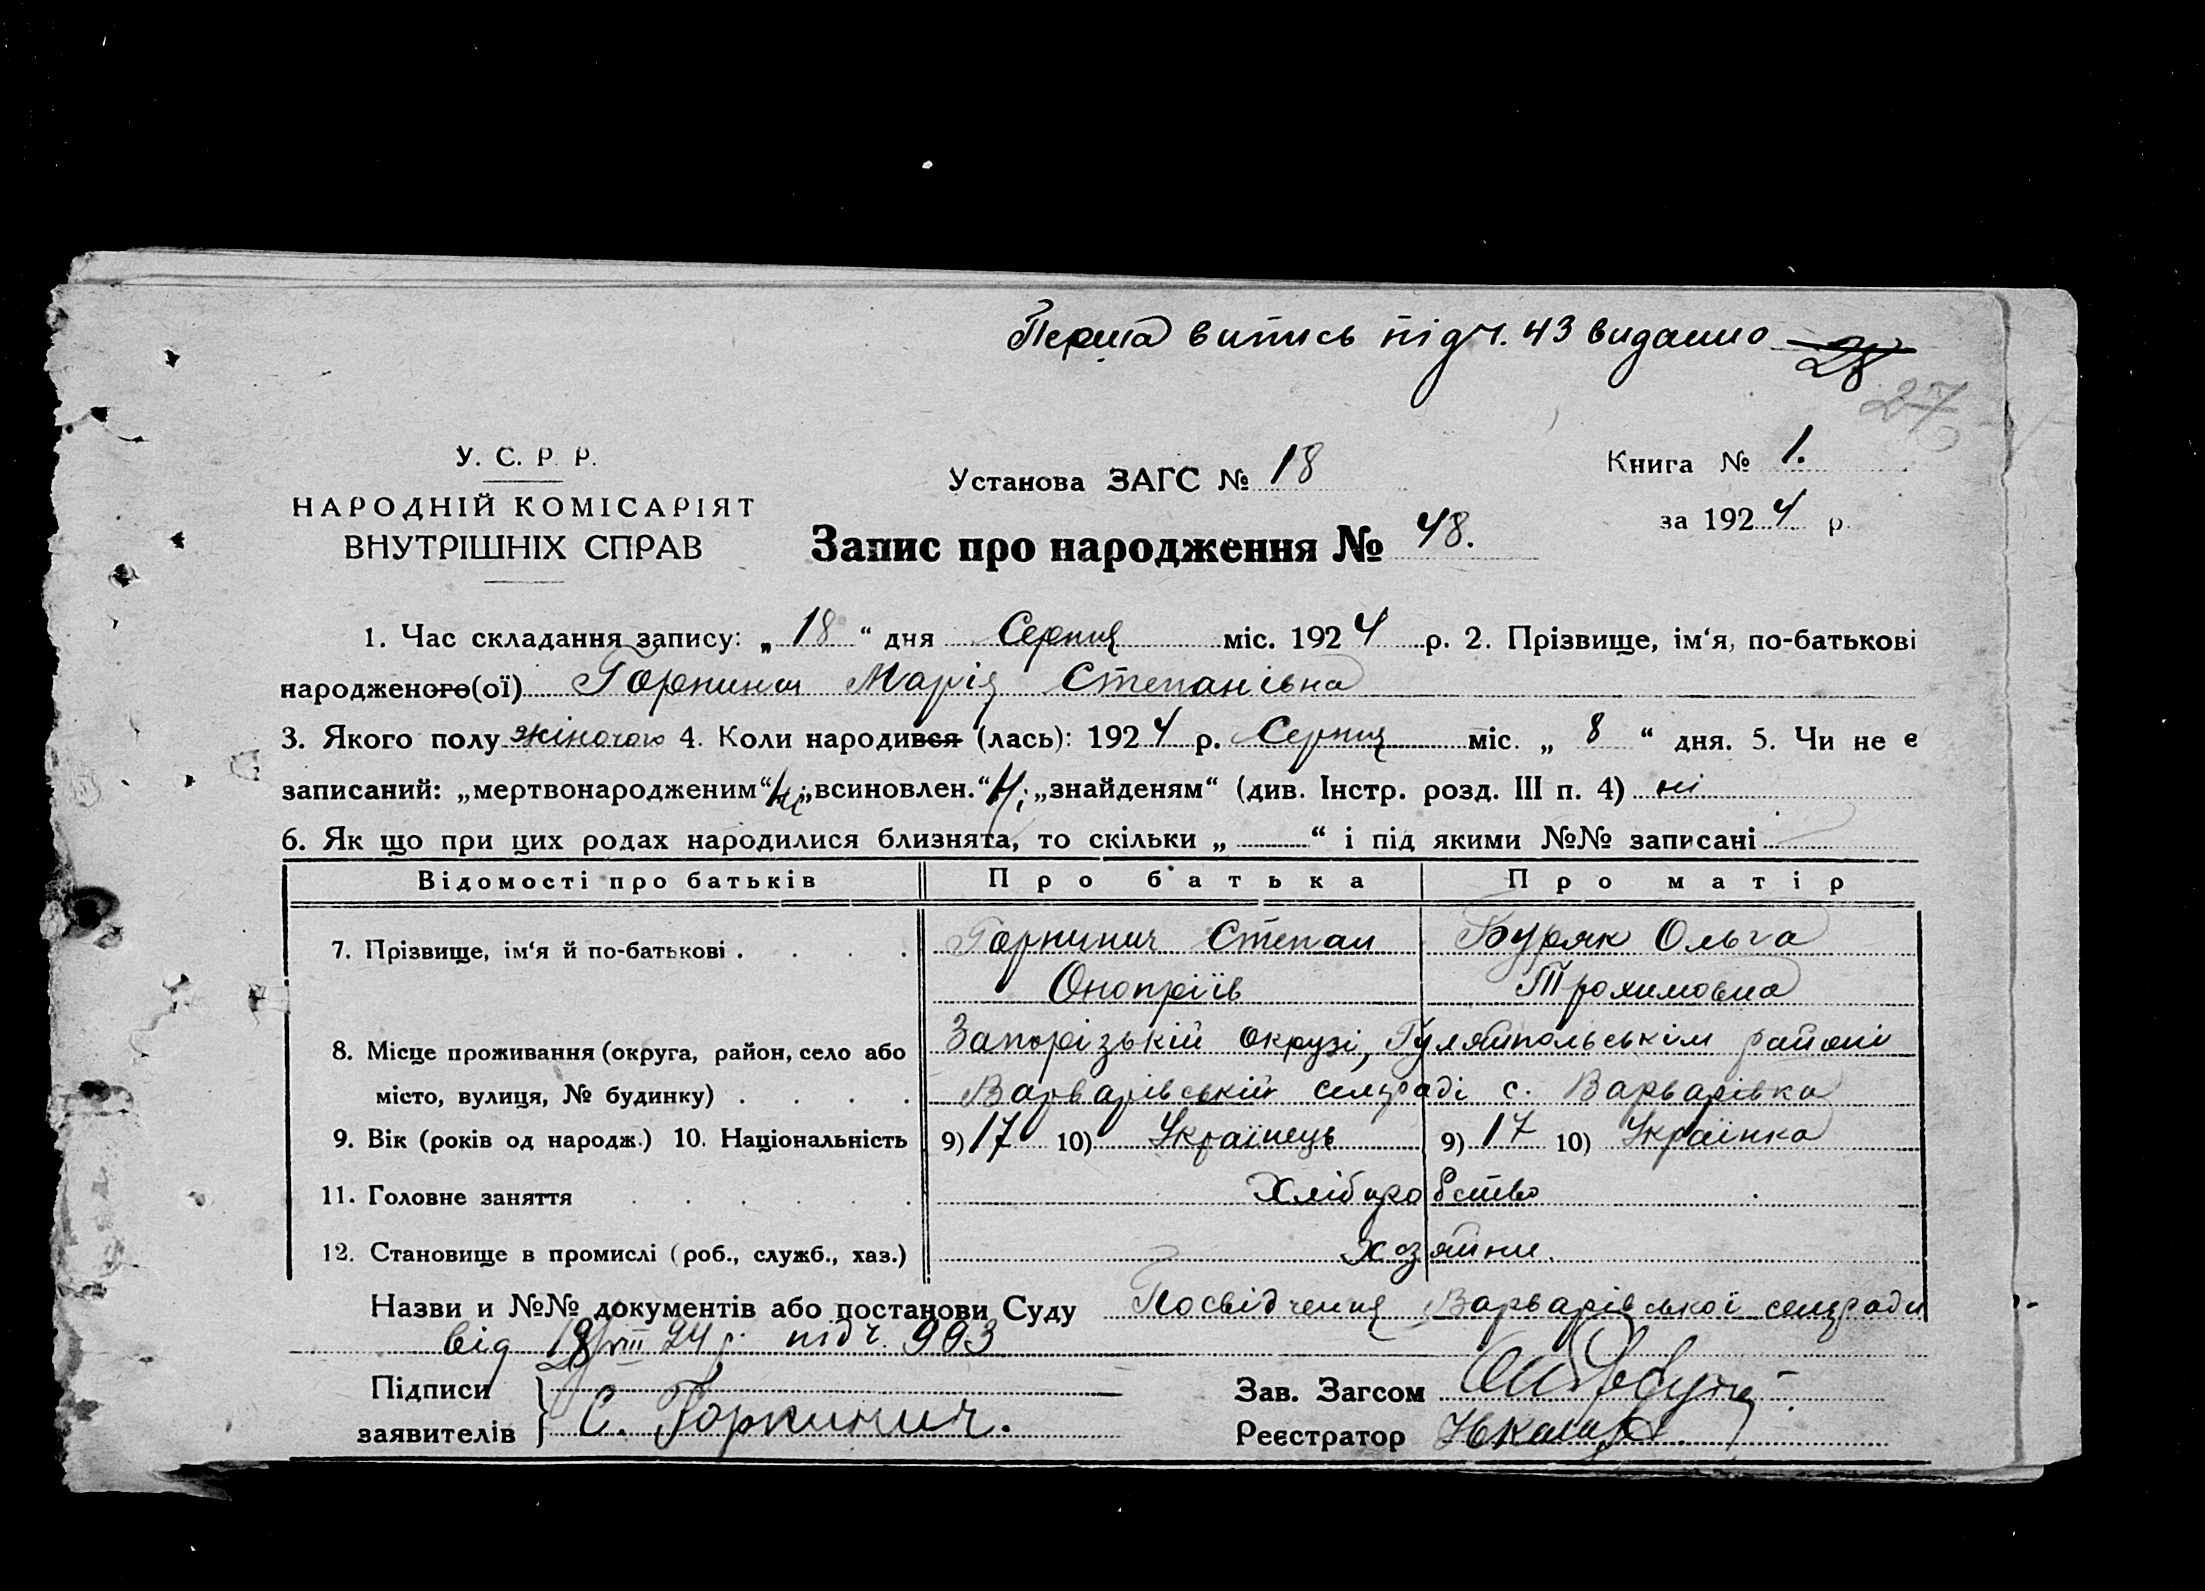 Перша випись під ч. 43 видано 28
27
У. С. Р. Р.
НАРОДНІЙ КОМІСАРІЯТ
ВНУТРІШНІХ СПРАВ
Установа ЗАГС № 18
Книга № 1.
за 1924 р.
Запис про народження № 48.
1. Час складання запису: „18“ дня Серпня міс. 1924 р. 2. Прізвище, ім‘я, по-батькові
народженого(ої) Горпинич Марія Степанівна
3. Якого полу жіночого 4. Коли народився (лась): 1924 р. Серпня міс. „ 8 “ дня. 5. Чи не є
записаний: „мертвонародженим“ ні; „всиновлен.“ Ні; „знайденям“ (див. Інстр. розд. III п. 4) ні
6. Як що при цих родах народилися близнята, то скільки „ “ і під якими №№ записані
Відомості про батьків Про батька Про матір
7. Прізвище, ім‘я й по-батькові . . . . Горпинич Степан Буряк Ольга
Оноприїв Трохимовна
8. Місце проживання (округа, район, село або Запорізькій окрузі, Гуляйпольськім районі
місто, вулиця, № будинку) . . . . Варварівській сельраді с. Варварівка
9. Вік (років од народж.) 10. Національність 9) 17 10) Українець 9) 17 10) Українка
11. Головне заняття . . . . . . Хліборобство
12. Становище в промислі (роб., служб., хаз.) хозяйни.
Назви и №№ документів або постанови Суду Посвідчення Варварівської сельради
від 18/VIII 24 р. під ч. 993
Підписи
заявителів С. Горпинич.
Зав. Загсом
Реєстратор